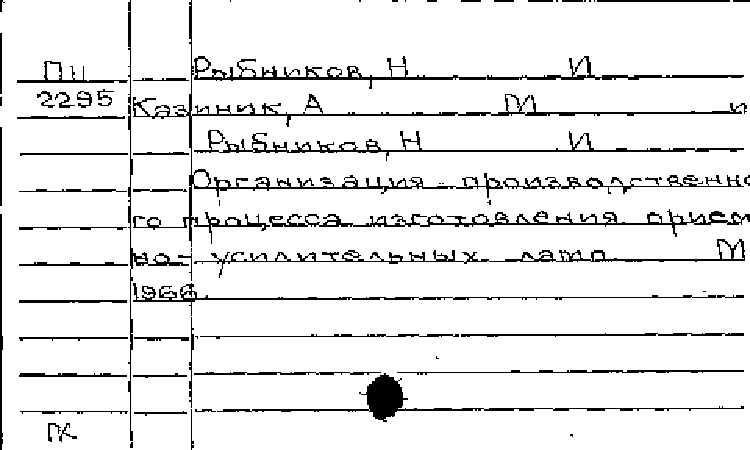 П11 Рыбников, Н И
2295 Казиник, А М и
Рыбников, Н И
Организация производственно
го процесса изготовления прием
но- усилительных ламп М
1966
ПК